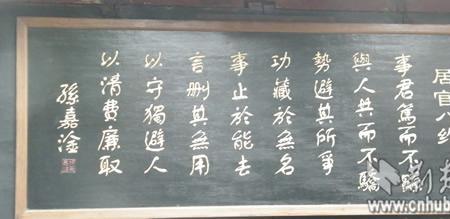 居官八約
事君篤而不顯
與人共而不驕
勢避其所爭
功藏於無名
事止於能去
言刪其無用
以守獨避人
以清費廉取
孫嘉淦
荆楚
www.cnhub